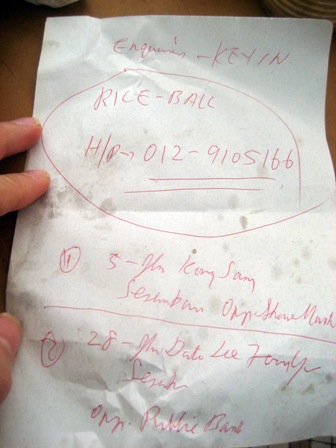 Enquiries - KEVIN
RICE-BALL
H/P→ 012-9105166
① 5-Jln Kong Sang
Seremban Opp. Shaw
② 28-Jln Dato Lee Fong
Opp. Public Bank